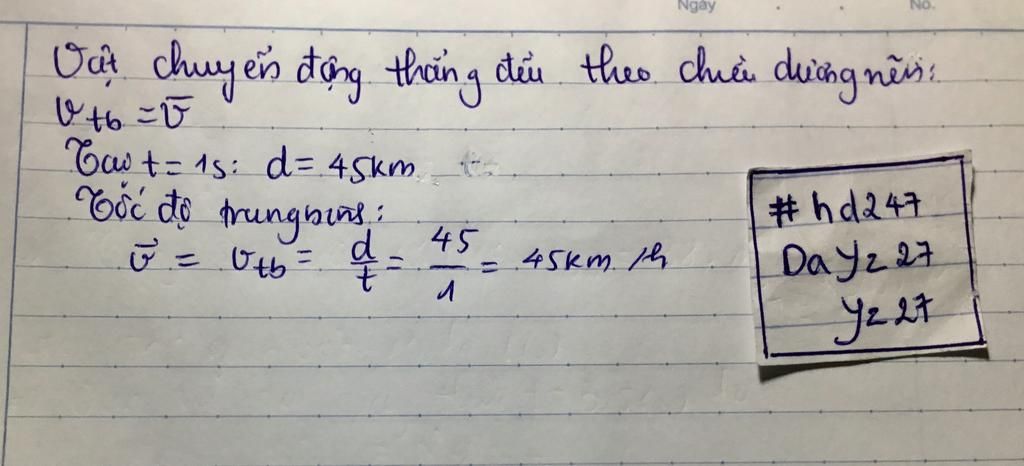 Ngày
No.
Vật chuyển động thẳng đều theo chiều dương nên:
v_tb = v̅
Tại t = 1s: d = 45km
Tốc độ trung bình:
v⃗ = v_tb = d/t = 45/1 = 45km /h
#hd247
Dayz27
yz27